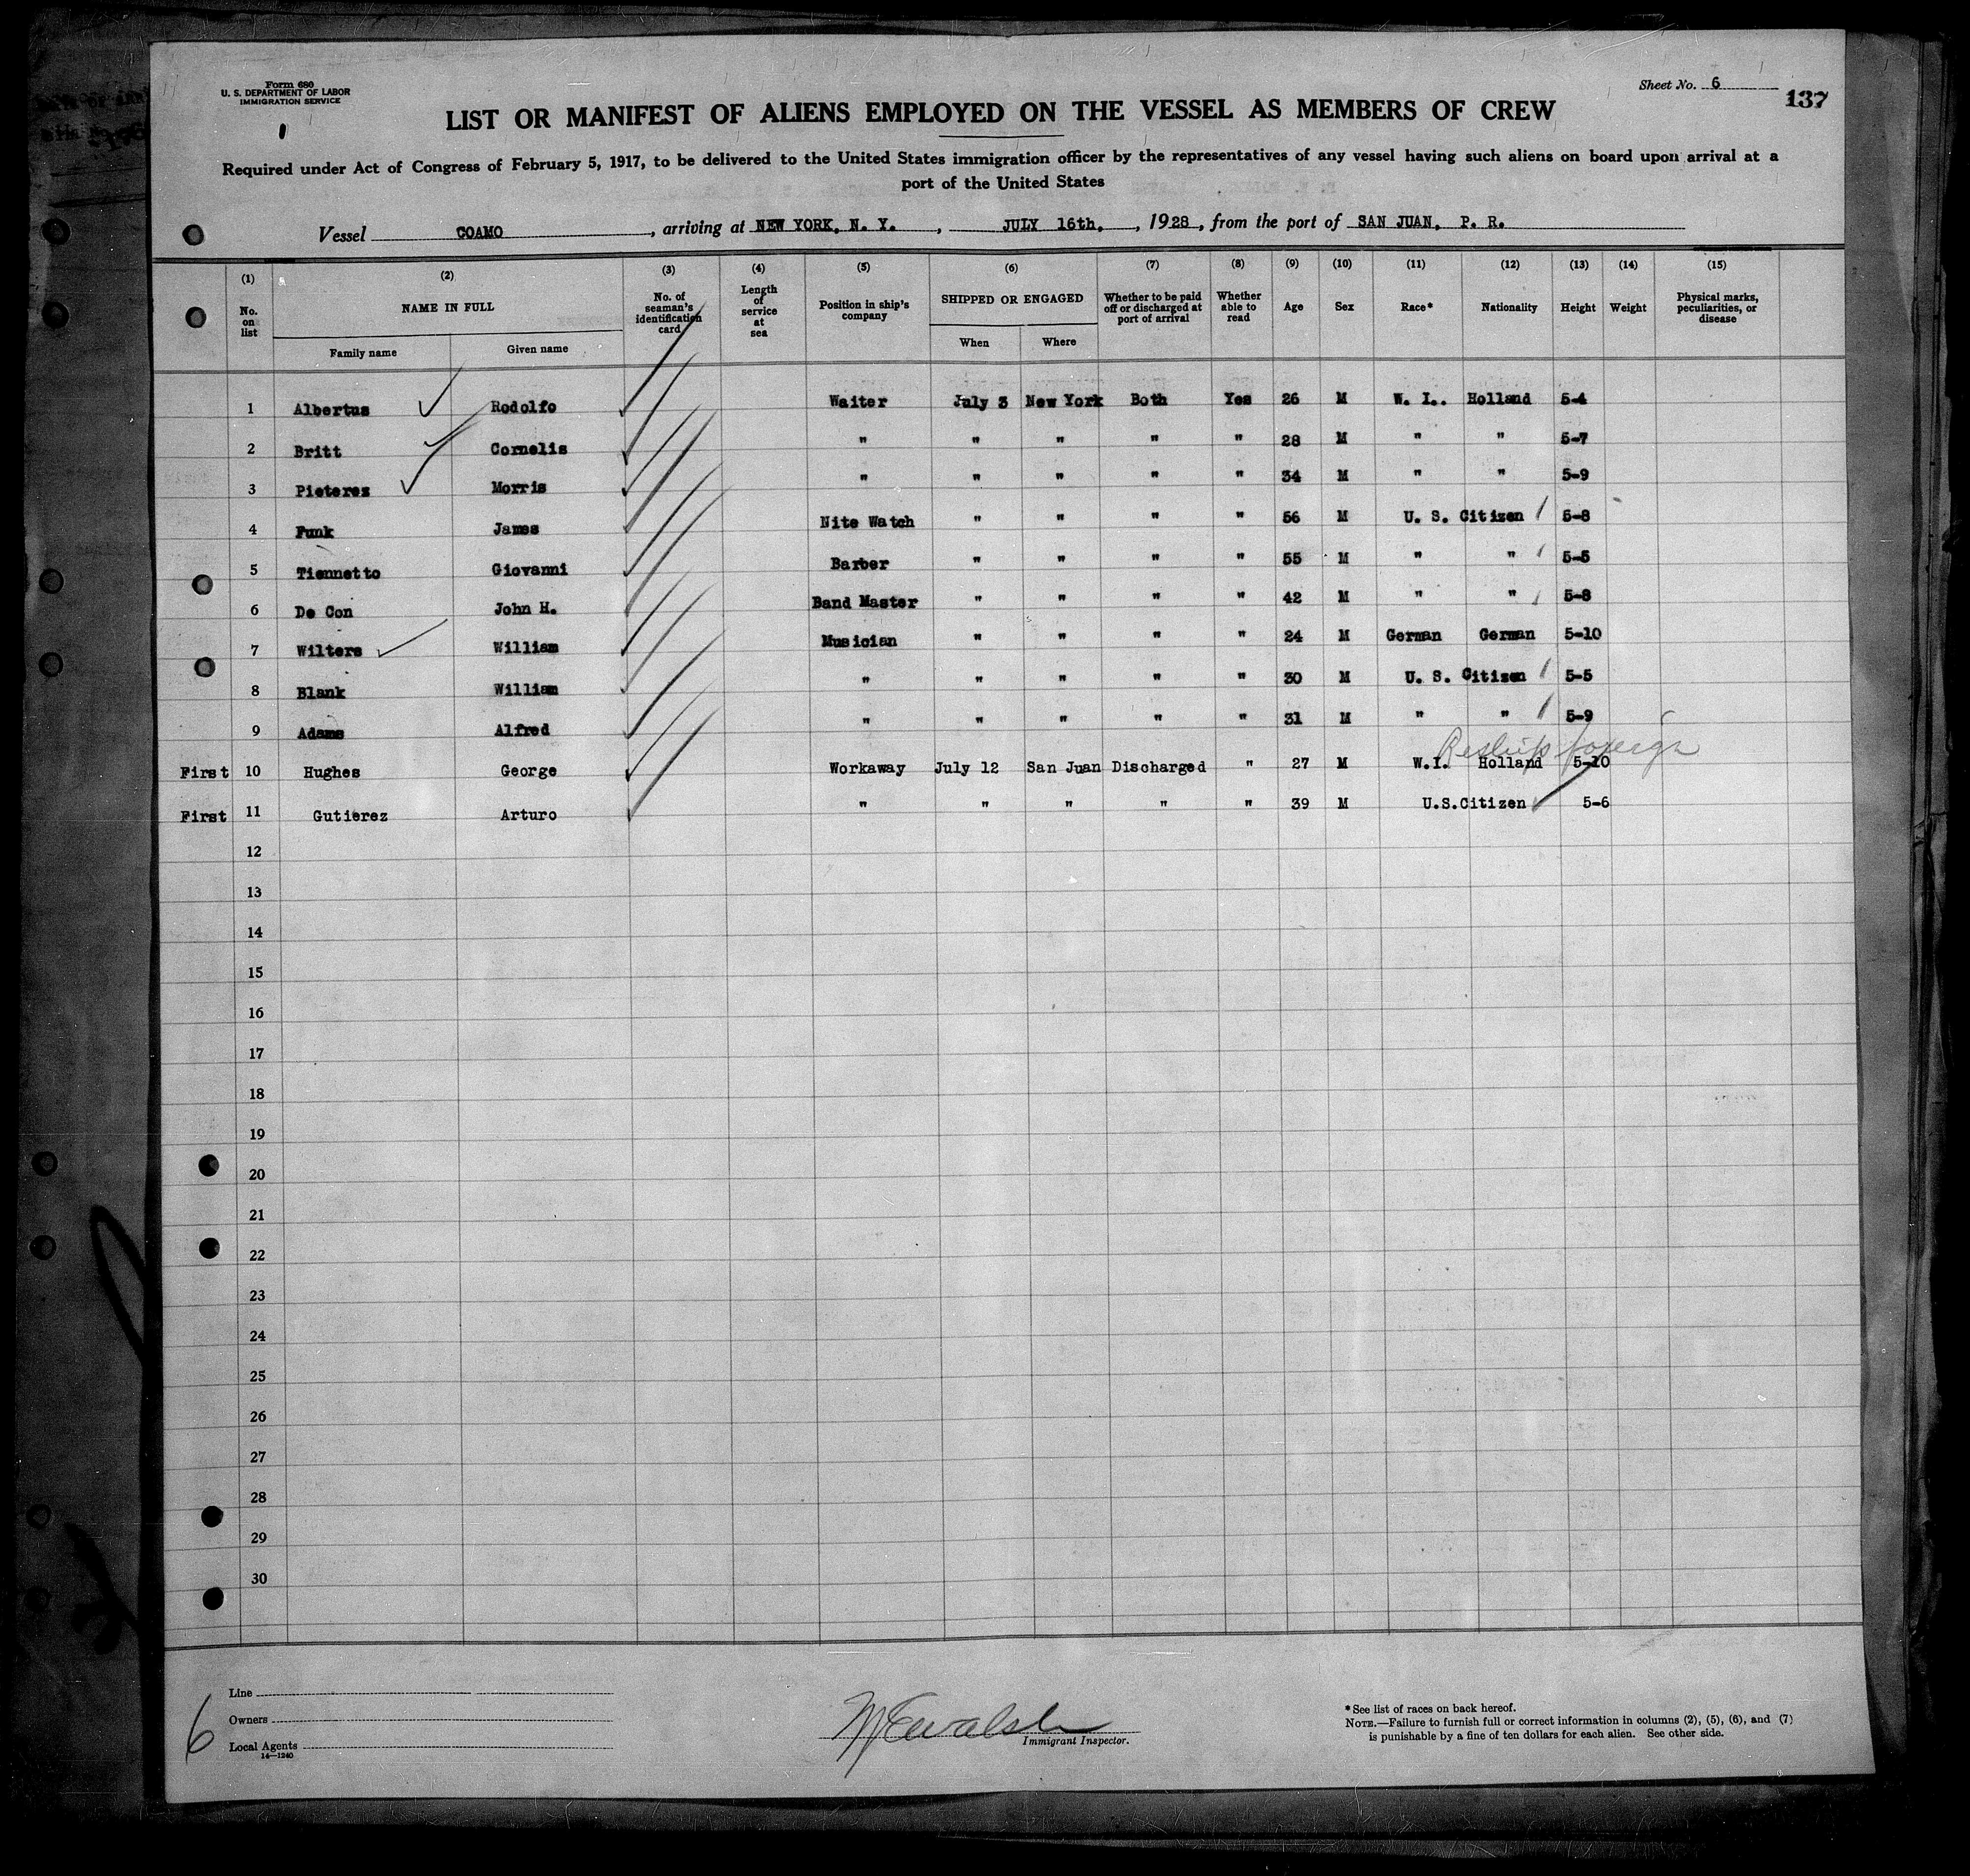 Form 680
U. S. DEPARTMENT OF LABOR
IMMIGRATION SERVICE
Sheet No. 6
137
LIST OR MANIFEST OF ALIENS EMPLOYED ON THE VESSEL AS MEMBERS OF CREW
Required under Act of Congress of February 5, 1917, to be delivered to the United States immigration officer by the representatives of any vessel having such aliens on board upon arrival at a
port of the United States
Vessel COAMO, arriving at NEW YORK, N. Y., JULY 16th, 1928, from the port of SAN JUAN, P. R.
(1) (2) (3) (4) (5) (6) (7) (8) (9) (10) (11) (12) (13) (14) (15)
No. on list NAME IN FULL Family name Given name No. of seaman's identification card Length of service at sea Position in ship's company SHIPPED OR ENGAGED When Where Whether to be paid off or discharged at port of arrival Whether able to read Age Sex Race* Nationality Height Weight Physical marks, peculiarities, or disease
1 Albertus Rodolfo Waiter July 3 New York Both Yes 26 M W. I.. Holland 5-4
2 Britt Cornelis " " " " " 28 M " " 5-7
3 Pieterez Morris " " " " " 34 M " " 5-9
4 Funk James Nite Watch " " " " 56 M U. S. Citizen 5-8
5 Tiennetto Giovanni Barber " " " " 55 M " " 5-5
6 De Con John H. Band Master " " " " 42 M " " 5-8
7 Wilters William Musician " " " " 24 M German German 5-10
8 Blank William " " " " " 30 M U. S. Citizen 5-5
9 Adams Alfred " " " " " 31 M " " 5-9
Reship foreign
First 10 Hughes George Workaway July 12 San Juan Discharged " 27 M W.I. Holland 5-10
First 11 Gutierez Arturo " " " " " 39 M U.S.Citizen 5-6
12
13
14
15
16
17
18
19
20
21
22
23
24
25
26
27
28
29
30
6
Line
Owners
Local Agents
14—1240
Immigrant Inspector.
*See list of races on back hereof.
NOTE.—Failure to furnish full or correct information in columns (2), (5), (6), and (7)
is punishable by a fine of ten dollars for each alien. See other side.